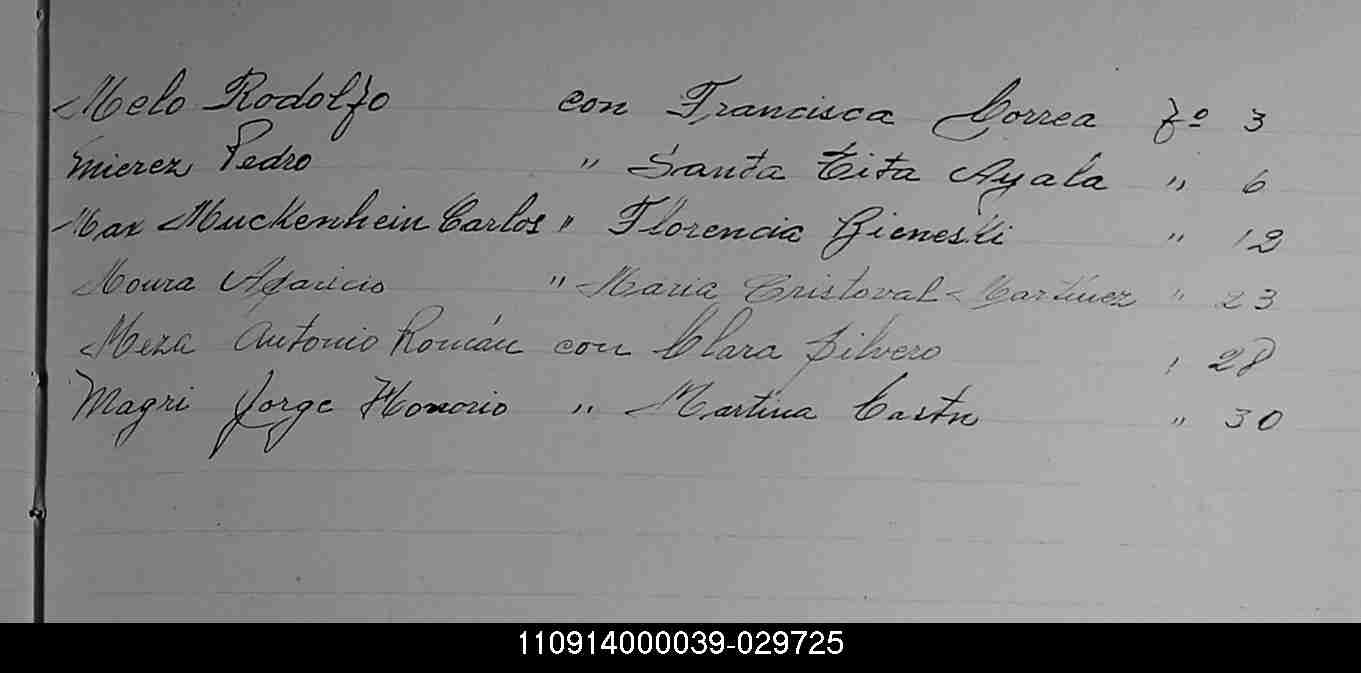 Melo Rodolfo con Francisca Correa fº 3
Mierez Pedro " Santa Tita Ayala " 6
Max Muckenhein Carlos " Florencia Gieneski " 12
Moura Aparicio " Maria Cristoval Martinez " 23
Meza Antonio Román con Clara Silvero " 28
Magri Jorge Honorio " Martina Castn " 30
110914000039-029725